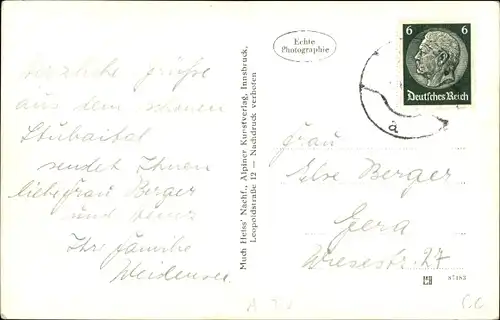 Herzliche Grüsse
aus dem schönen
Stubaital
sendet Ihnen
liebe Frau Berger
und
Ihre Familie
Weidensee.
Echte
Photographie
Much Heiss' Nachf., Alpiner Kunstverlag, Innsbruck,
Leopoldstraße 12 — Nachdruck verboten
6 6
Deutsches Reich
a
Frau
Else Berger
Gera
Wiesestr. 27
87483